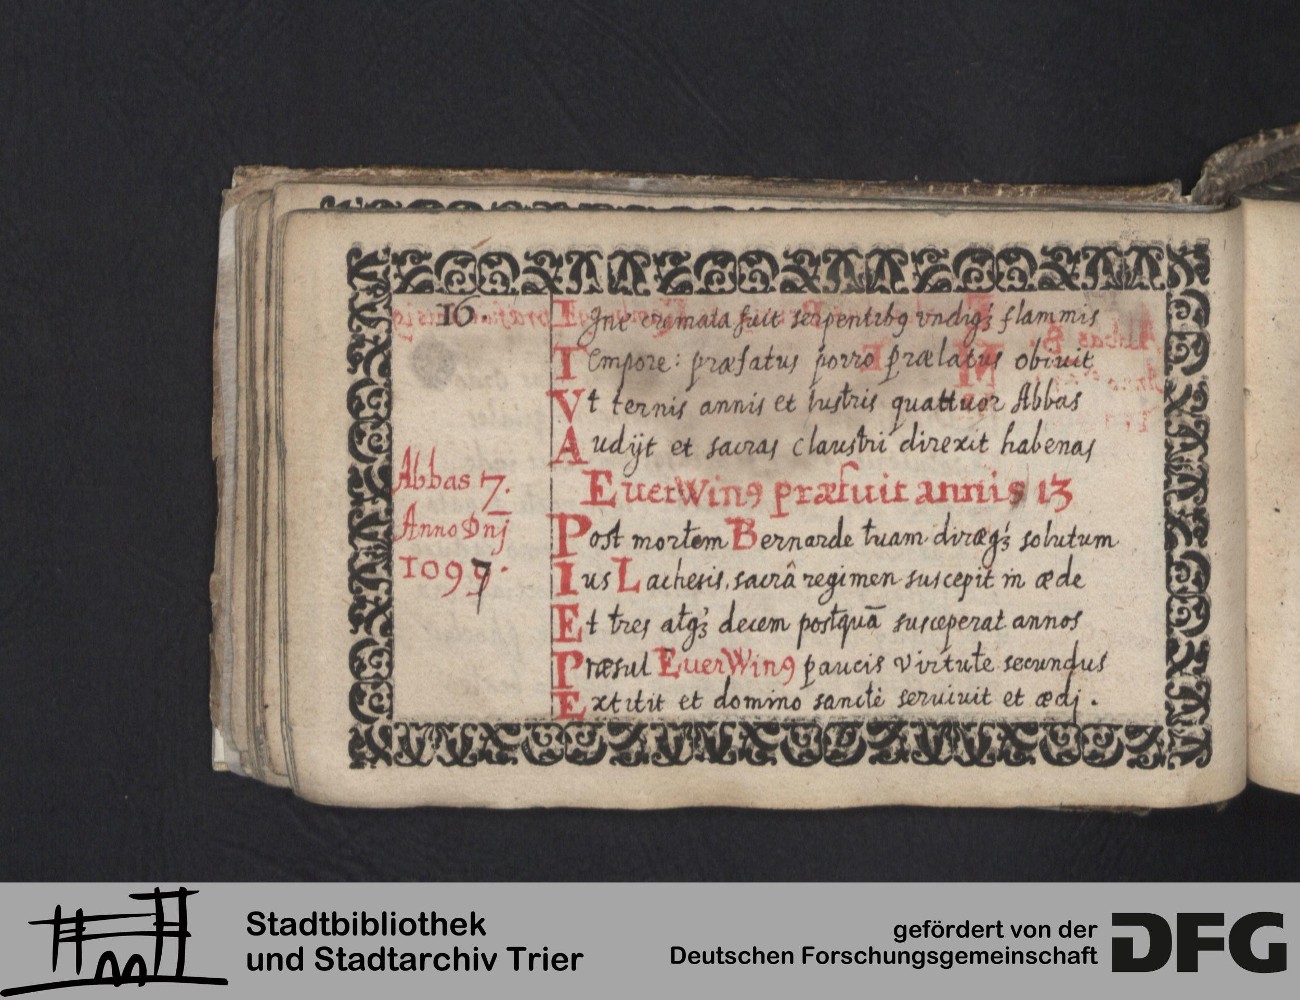 16.
Igne cremata fuit serpentibꝰ vndiqꝫ flammis
Tempore: præfatus porro prælatus obiuit
Vt ternis annis et lustris quattuor Abbas
Audijt et sacras claustri direxit habenas
Abbas 7.
Anno Dnj
1097.
EuerWinꝰ præfuit annis 13
Post mortem Bernarde tuam diræqꝫ solutum
Ius Lachesis, sacrâ regimen suscepit in æde
Et tres atqꝫ decem postquā susceperat annos
Præsul EuerWinꝰ paucis virtute secundus
Extitit et domino sanctè seruiuit et ædj.
Stadtbibliothek
und Stadtarchiv Trier
gefördert von der
Deutschen Forschungsgemeinschaft
DFG